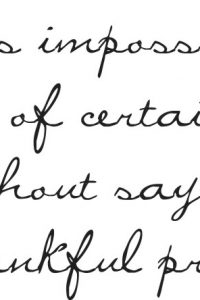 s imposs
of certai
hout say
nkful pr